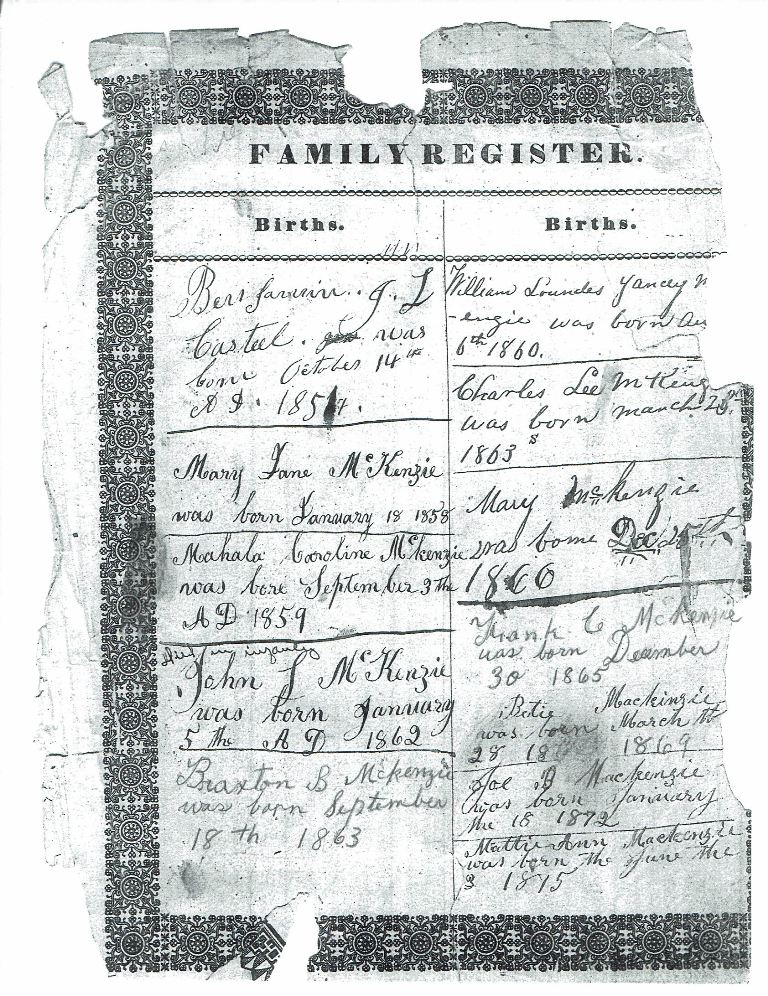 FAMILY REGISTER.
Births.
Benjamin. J. L
Casteel. was
born October 14th
A D. 1854.
Mary Jane McKenzie
was born January 18 1858
Mahala Caroline McKenzie
was bore September 3 the
A D 1859
Died in infantcy
John J McKenzie
was born January
5 th A D 1862
Braxton B McKenzie
was born September
18 th 1863
Births.
William Loundes Yancey M
-enzie was born Au
6th 1860.
Charles Lee McKenz
was born march
1863
Mary McKenzie
was borne Dec 25th
1860
Frank C McKenzie
was born December
30 1865
Betie Mackinzie
was born March th
28 18 1869
Joe B Mackenzie
was born January
the 18 1872
Mattie Ann Mackenzie
was born the June the
3 1875